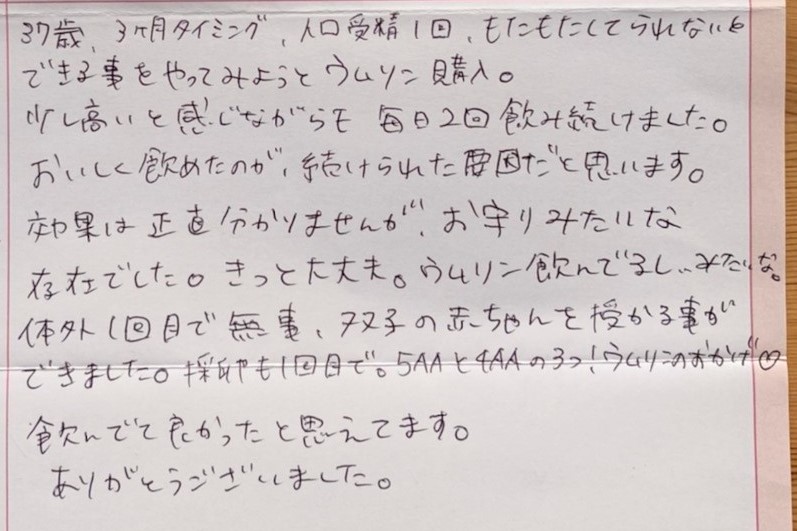 37歳、3ヶ月タイミング、人口受精1回、もたもたしてられないと
できる事をやってみようと ウムリン購入。
少し高いと感じながらも 毎日2回飲み続けました。
おいしく飲めたのが、続けられた要因だと思います。
効果は正直分かりませんが、お守りみたいな
存在でした。きっと大丈夫。ウムリン飲んでるし…みたいな。
体外1回目で無事、双子の赤ちゃんを授かる事が
できました。採卵も1回目で。5AAと4AAの3つ!ウムリンのおかげ♡
飲んでて良かったと思えてます。
ありがとうございました。